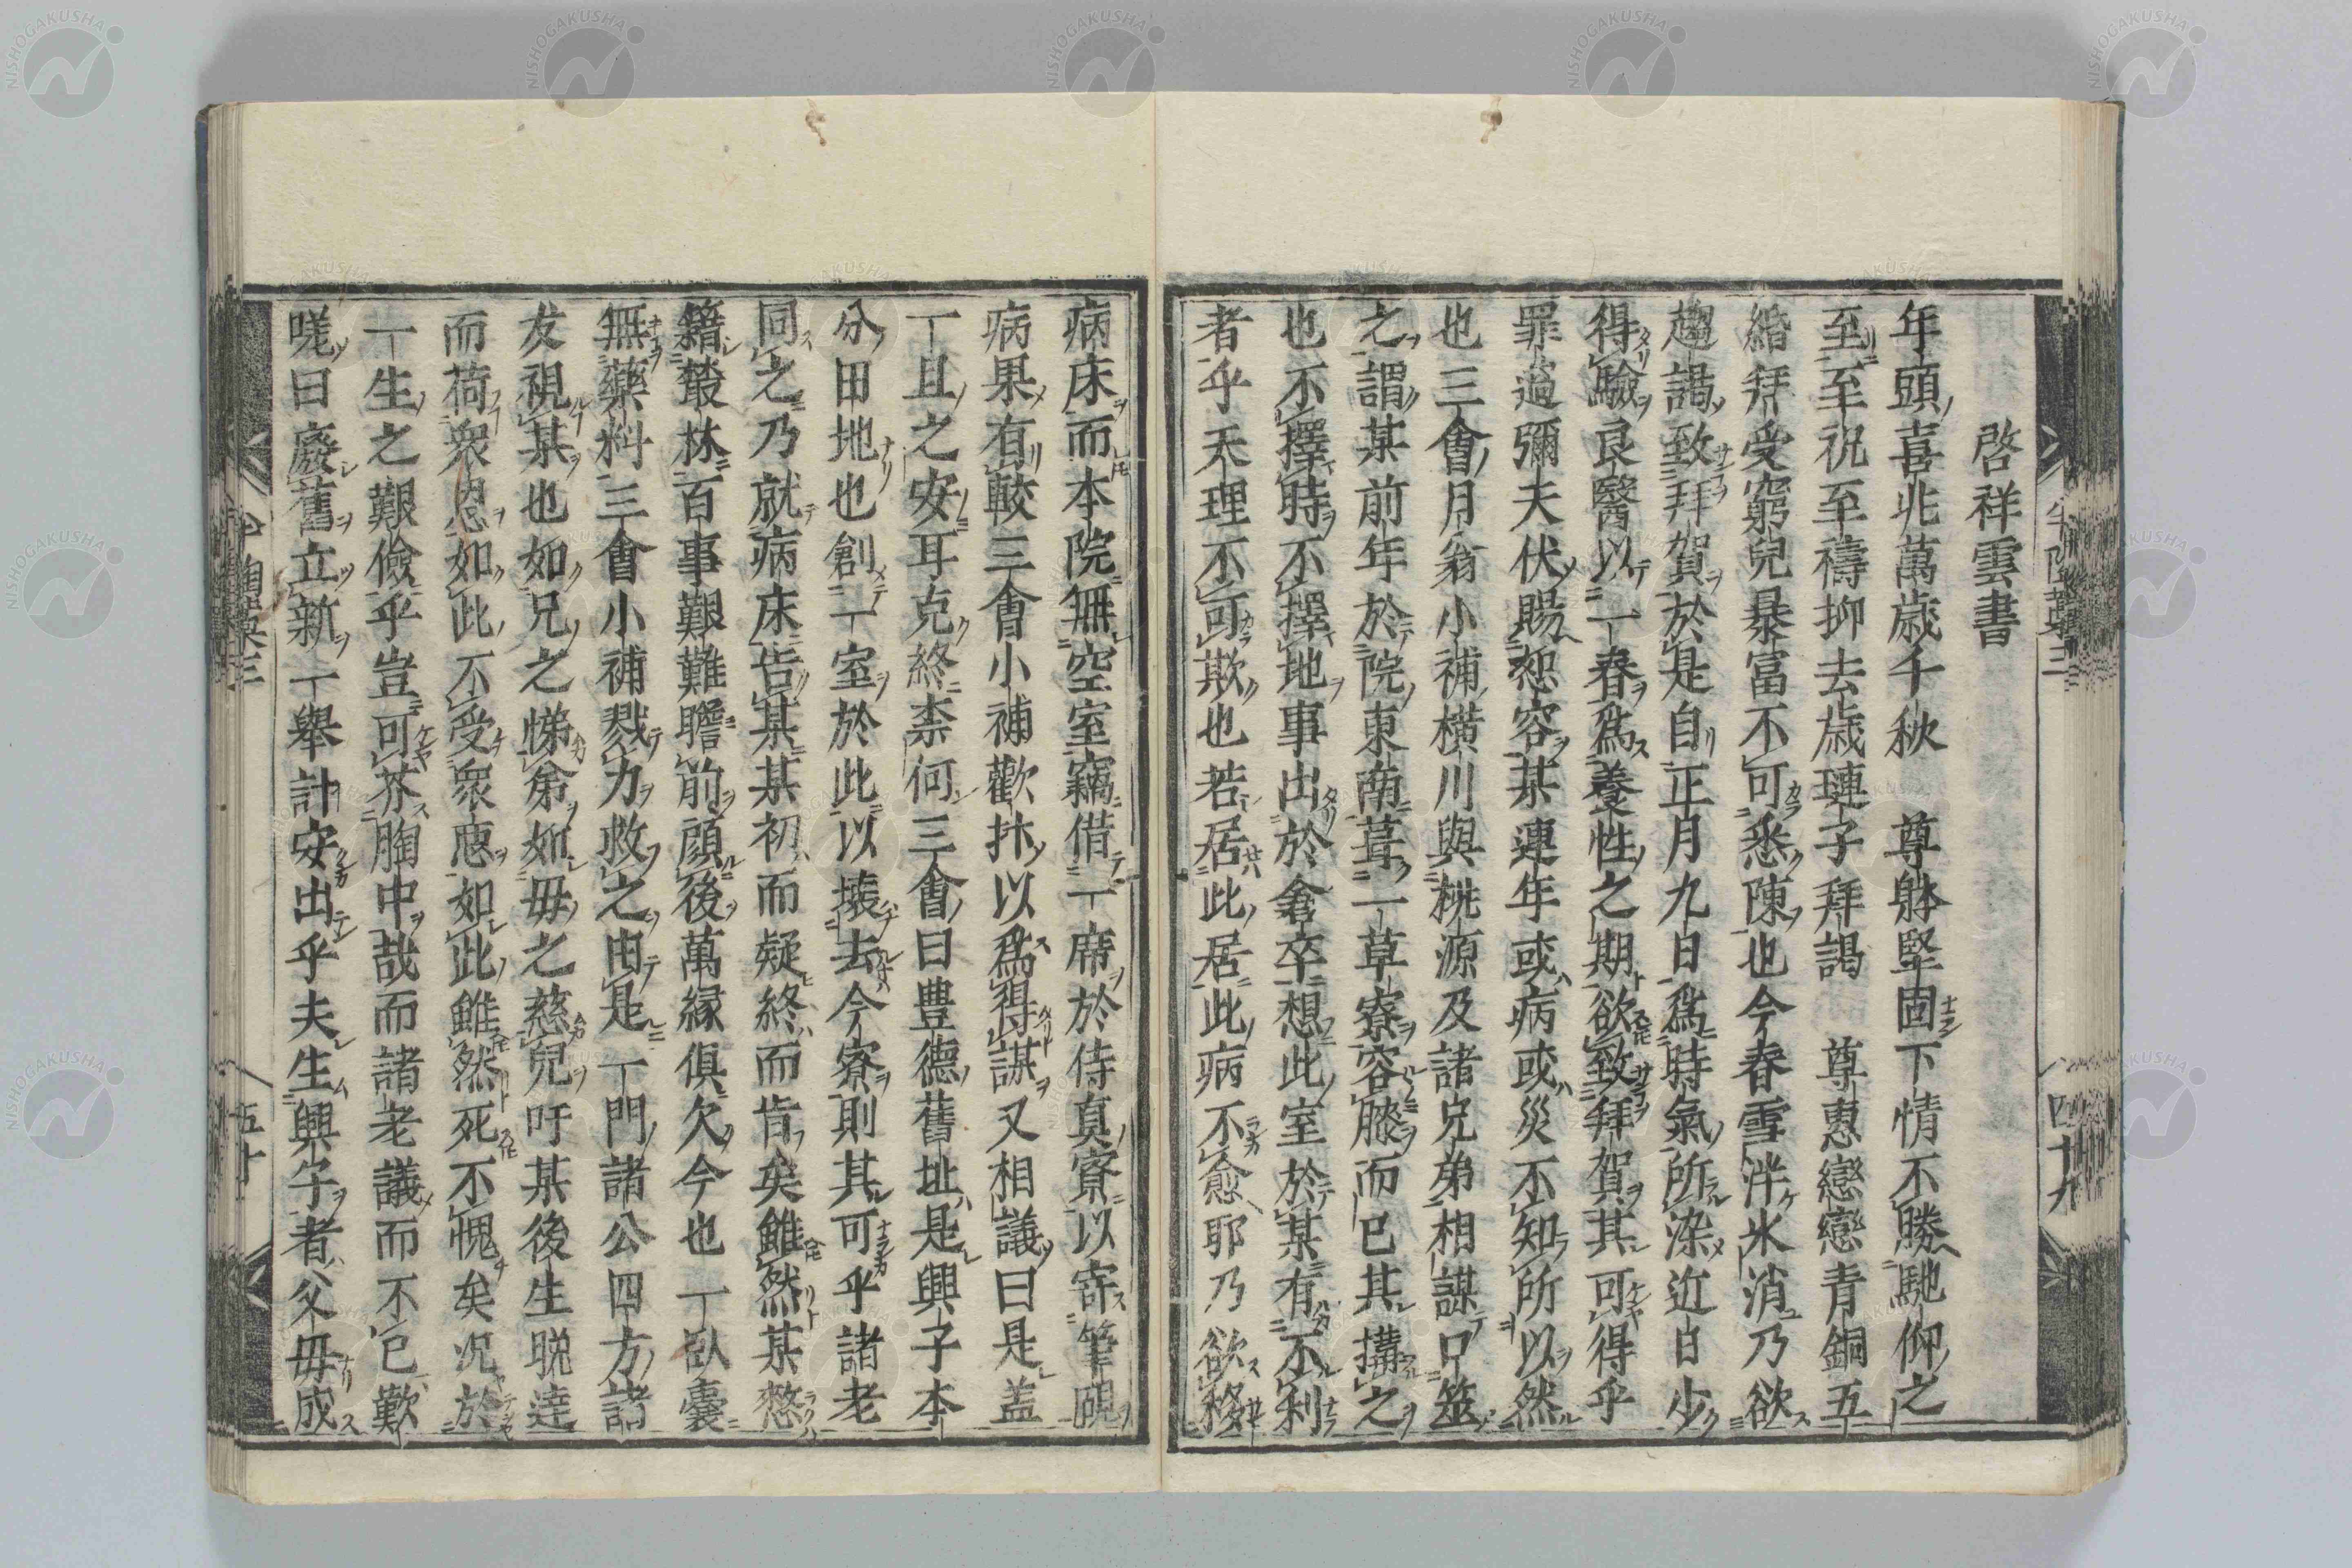 啓祥雲書
年頭喜兆萬歳千秋　尊躰堅固下情不勝馳仰之
至至祝至禱抑去歳璉子拜謁　尊惠戀戀青銅五
緡拜受窮兒暴富不可悉陳也今春雪泮氷消乃欲
趨謁致拜賀於是自正月九日爲時氣所染近日少
得驗良醫以一春爲養性之期欲致拜賀其可得乎
罪過彌天伏賜恕容某連年或病或災不知所以然
也三會月翁小補横川與桃源及諸兄弟相謀口筮
之謂某前年於院東南葺一草寮容膝而已其搆之
也不擇時不擇地事出於倉卒想此室於某有不利
者乎天理不可欺也若居此居此病不愈耶乃欲移
半陶藁三
四十九
病床而本院無空室竊借一席於侍真寮以寄筆硯
病果有較三會小補歡抃以爲得謀又相議曰是盖
一且之安耳克終柰何三會曰豊德舊址是興子本
分田地也創一室於此以壊去今寮則其可乎諸老
同之乃就病床告某某初而疑終而肯矣雖然某愁
籍叢林百事艱難瞻前顧後萬縁俱欠今也一臥嚢
無藥料三會小補戮力救之由是一門諸公四方諸
友視某也如兄之悌弟如母之慈兒吁某後生晩達
而荷衆恩如此不受衆惠如此雖然死不愧矣况於
一生之艱儉乎豈可芥胸中哉而諸老議而不已歎
嗟曰廢舊立新一舉計安出乎夫生興子者父母成
半陶藁三
五十
NISHOGAKUSHA